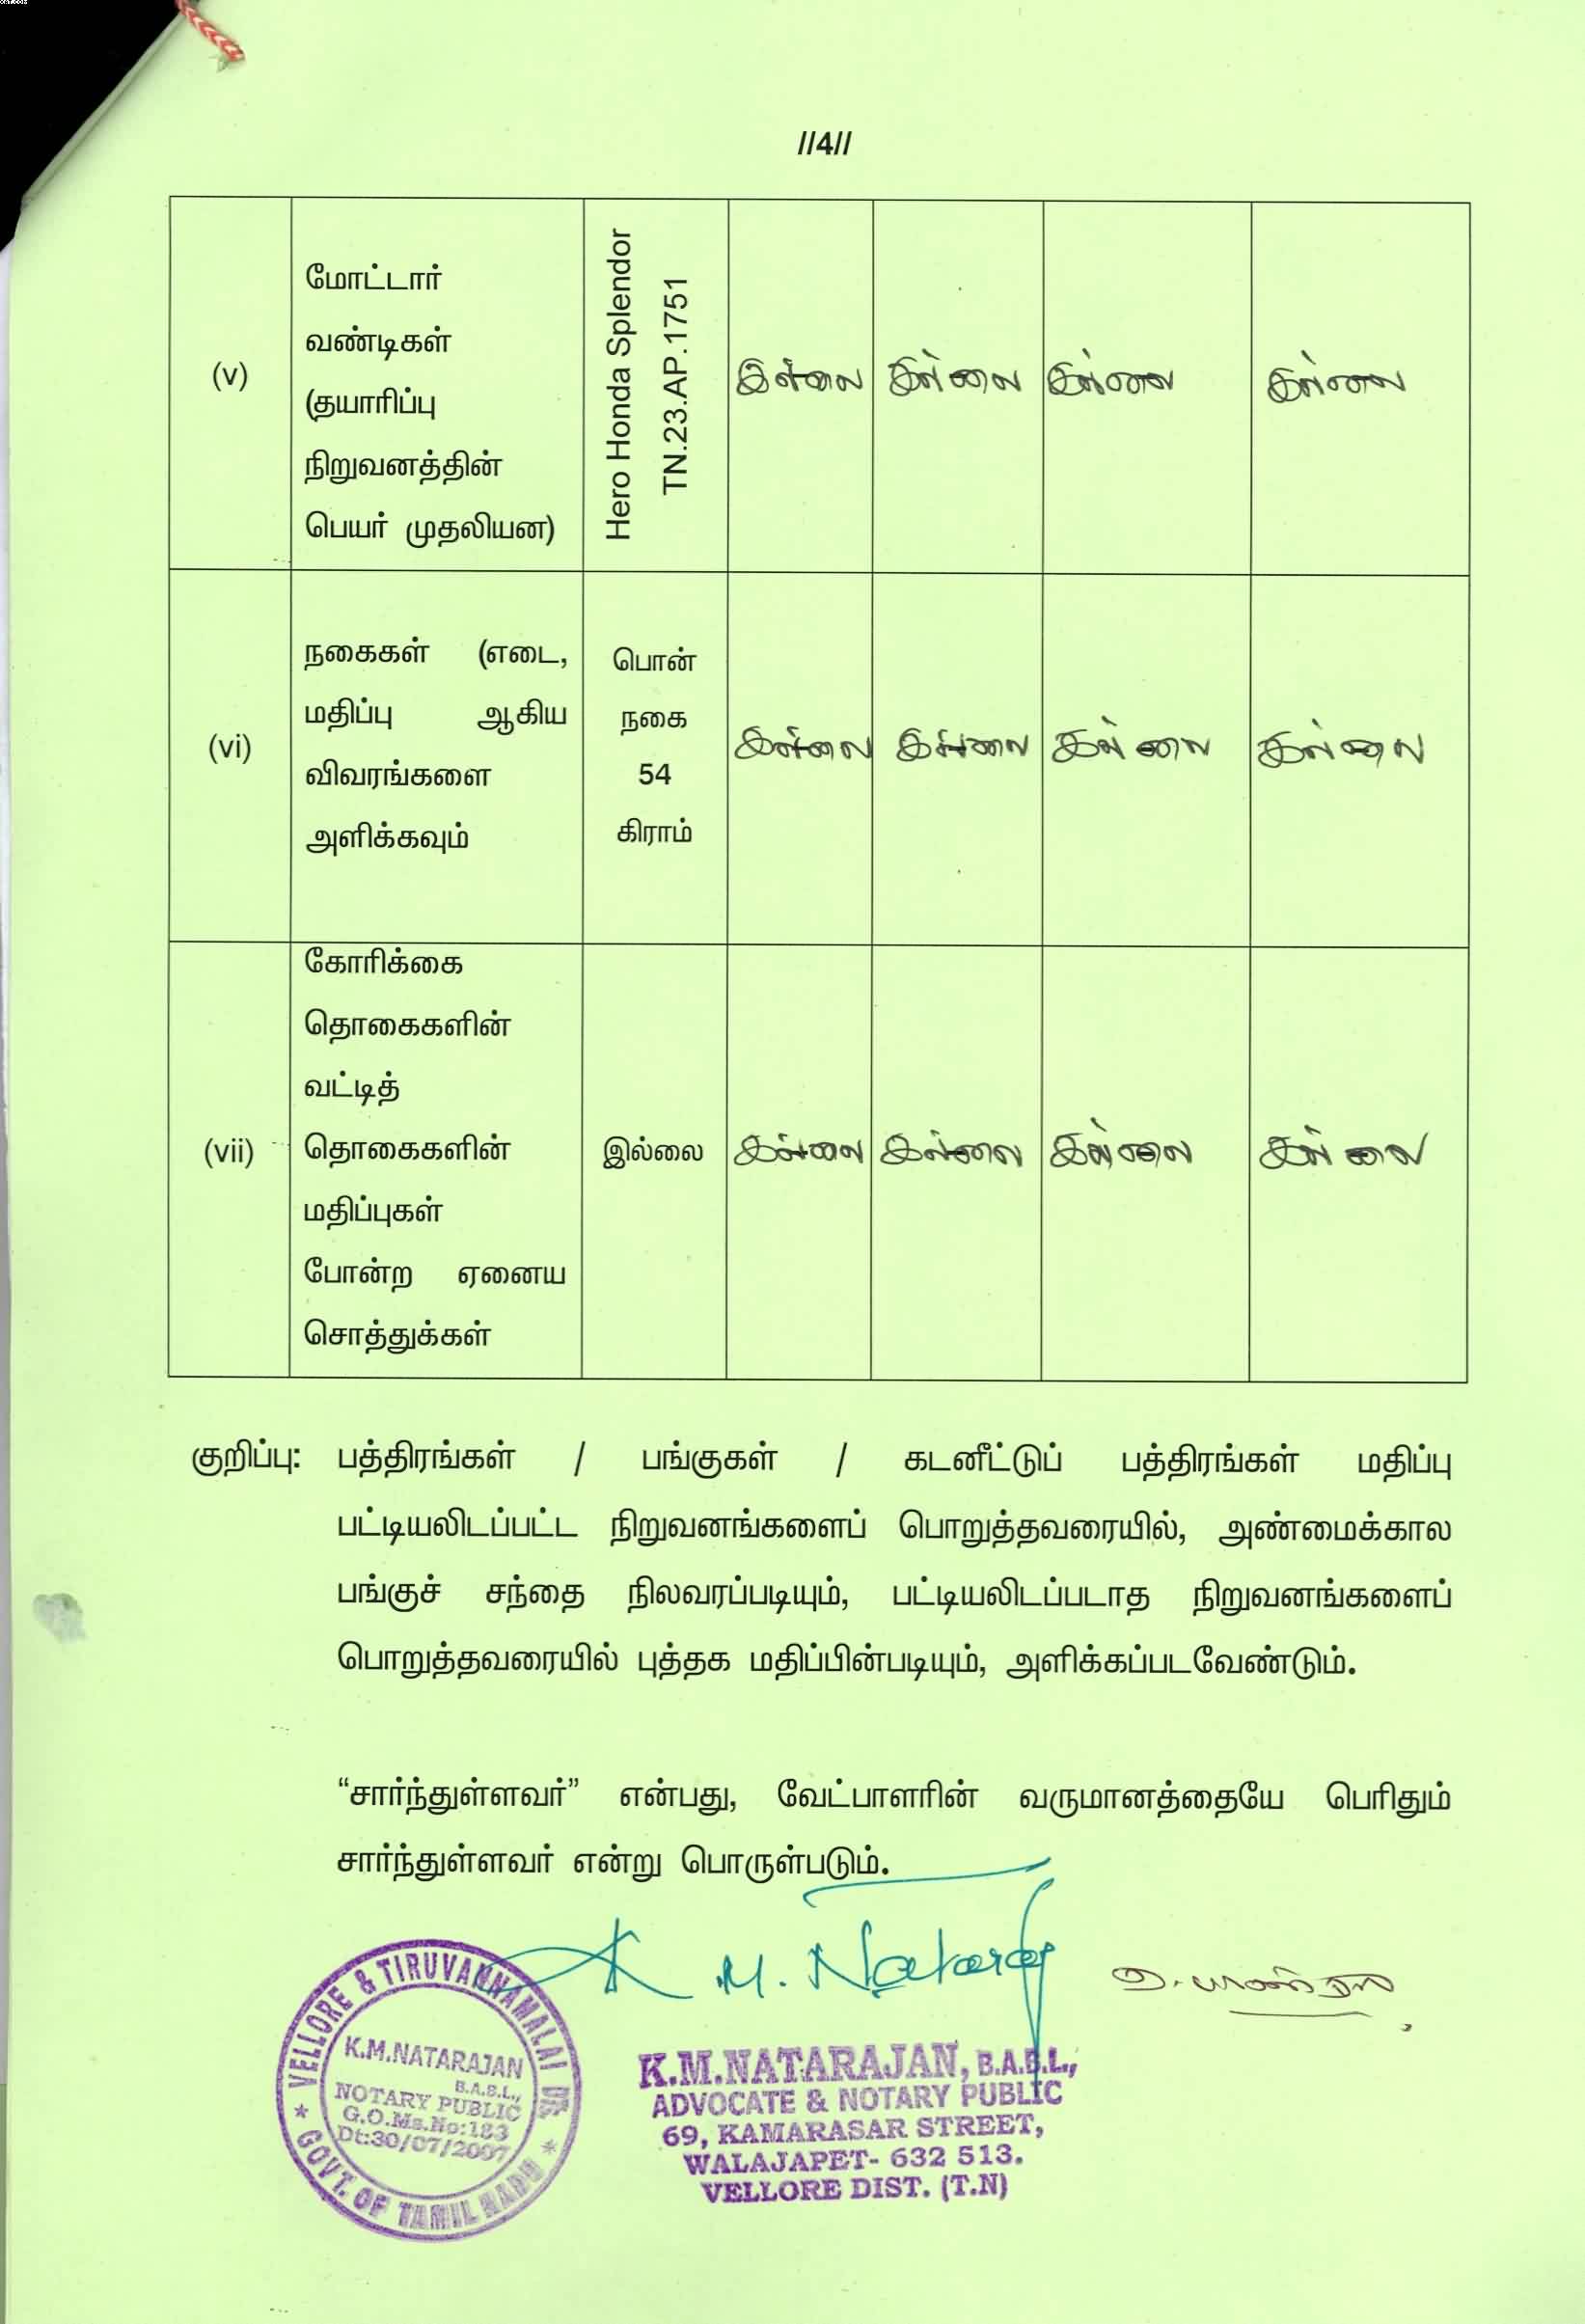 //4//
(v)
மோட்டார்
வண்டிகள்
(தயாரிப்பு
நிறுவனத்தின்
பெயர் முதலியன)
Hero Honda Splendor
TN.23.AP.1751
இல்லை இல்லை இல்லை இல்லை
(vi)
நகைகள் (எடை,
மதிப்பு ஆகிய
விவரங்களை
அளிக்கவும்
பொன்
நகை
54
கிராம்
இல்லை இல்லை இல்லை இல்லை
(vii)
கோரிக்கை
தொகைகளின்
வட்டித்
தொகைகளின்
மதிப்புகள்
போன்ற ஏனைய
சொத்துக்கள்
இல்லை இல்லை இல்லை இல்லை இல்லை
குறிப்பு: பத்திரங்கள் / பங்குகள் / கடனீட்டுப் பத்திரங்கள் மதிப்பு
பட்டியலிடப்பட்ட நிறுவனங்களைப் பொறுத்தவரையில், அண்மைக்கால
பங்குச் சந்தை நிலவரப்படியும், பட்டியலிடப்படாத நிறுவனங்களைப்
பொறுத்தவரையில் புத்தக மதிப்பின்படியும், அளிக்கப்படவேண்டும்.
“சார்ந்துள்ளவர்” என்பது, வேட்பாளரின் வருமானத்தையே பெரிதும்
சார்ந்துள்ளவர் என்று பொருள்படும்.
K. M. Nataraj
VELLORE & TIRUVANNAMALAI DT.
K.M.NATARAJAN
B.A.B.L.,
NOTARY PUBLIC
G.O.Ms.No:183
Dt:30/07/2007
* GOVT. OF TAMIL NADU *
K.M.NATARAJAN, B.A.B.L.,
ADVOCATE & NOTARY PUBLIC
69, KAMARASAR STREET,
WALAJAPET- 632 513.
VELLORE DIST. (T.N)